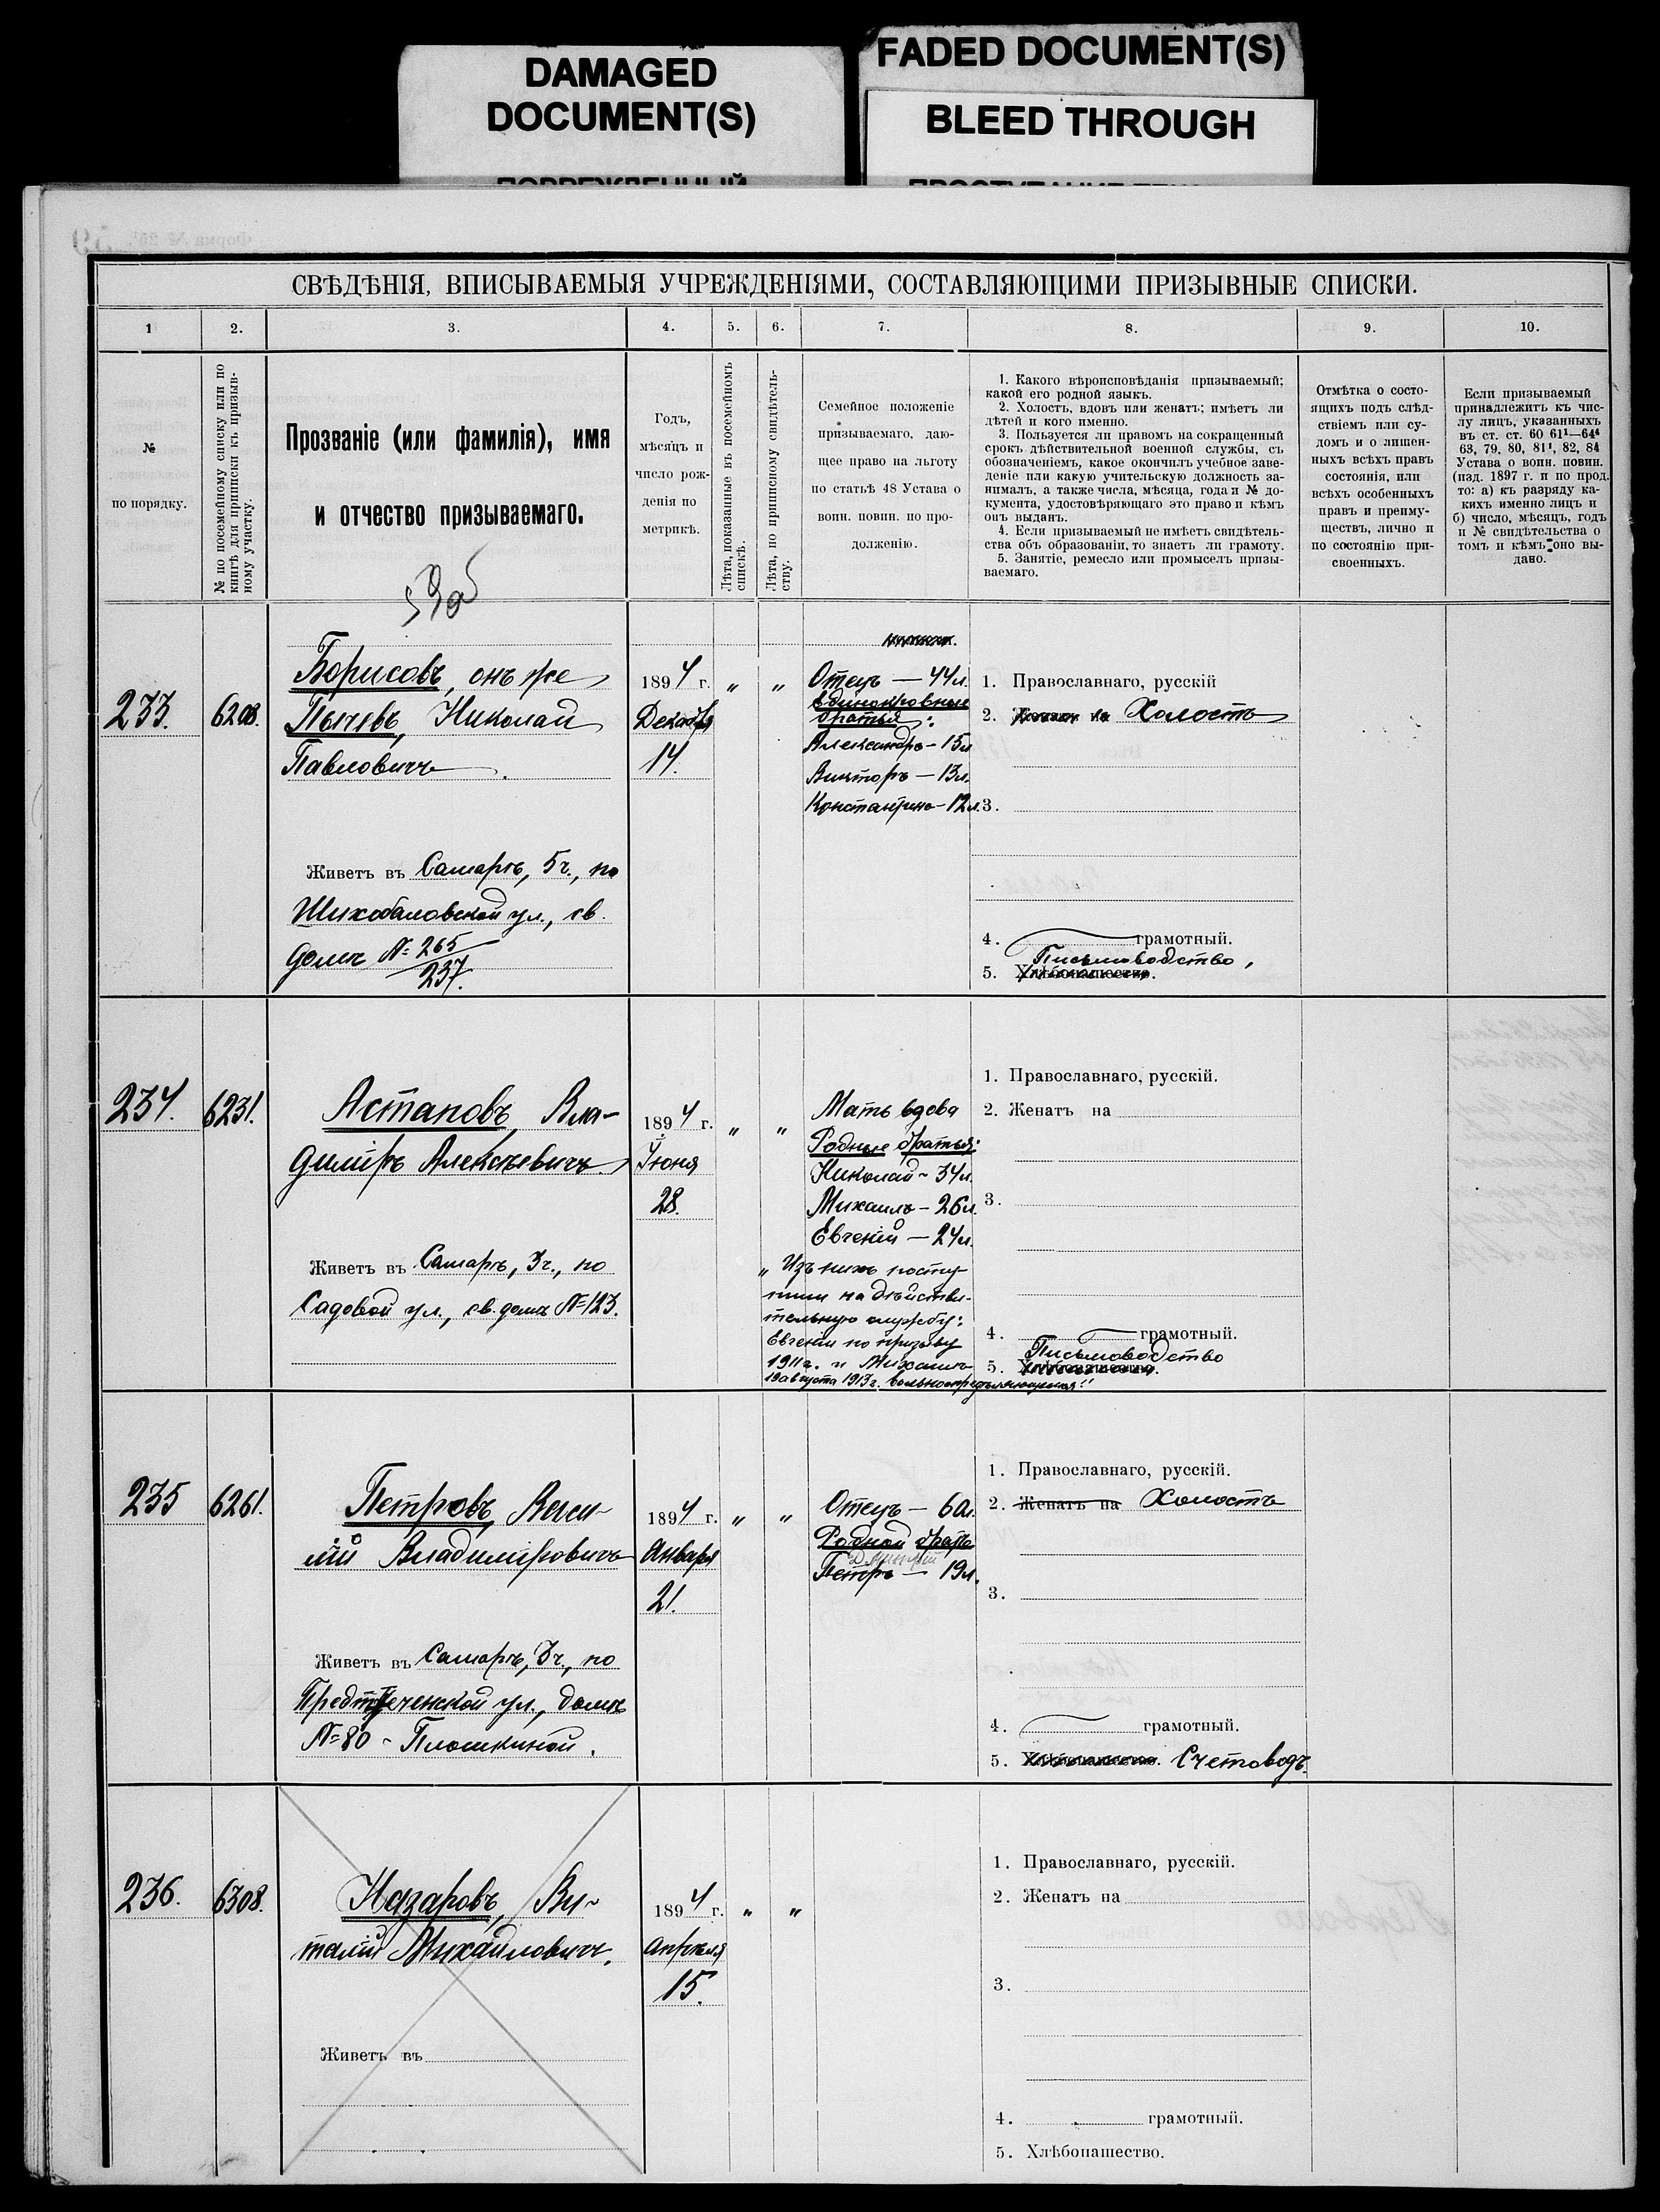 DAMAGED
DOCUMENT(S)
FADED DOCUMENT(S)
BLEED THROUGH
СВѢДѢНІЯ, ВПИСЫВАЕМЫЯ УЧРЕЖДЕНІЯМИ, СОСТАВЛЯЮЩИМИ ПРИЗЫВНЫЕ СПИСКИ.
1
2.
3.
4.
5.
6.
7.
8.
9.
10.
№
по порядку.
№ по посемейному списку или по
книгѣ для приписки къ призыв-
ному участку.
Прозваніе (или фамилія), имя
и отчество призываемаго.
Годъ,
мѣсяцъ и
число рож-
денія по
метрикѣ.
Лѣта, показанные въ посемейномъ
спискѣ.
Лѣта, по приписному свидѣтель-
ству.
Семейное положеніе
призываемаго, даю-
щее право на льготу
по статьѣ 48 Устава о
воин. повин. по про-
долженію.
1. Какого вѣроисповѣданія призываемый;
какой его родной языкъ.
2. Холостъ, вдовъ или женатъ; имѣетъ ли
дѣтей и кого именно.
3. Пользуется ли правомъ на сокращенный
срокъ дѣйствительной военной службы, съ
обозначеніемъ, какое окончилъ учебное заве-
деніе или какую учительскую должность за-
нималъ, а также числа, мѣсяца, года и № до-
кумента, удостовѣряющаго это право и кѣмъ
онъ выданъ.
4. Если призываемый не имѣетъ свидѣтель-
ства объ образованіи, то знаетъ ли грамоту.
5. Занятіе, ремесло или промыселъ призы-
ваемаго.
Отмѣтка о состо-
ящихъ подъ слѣд-
ствіемъ или су-
домъ и о лишен-
ныхъ всѣхъ правъ
состоянія, или
всѣхъ особенныхъ
правъ и преиму-
ществъ, лично и
по состоянію при-
своенныхъ.
Если призываемый
принадлежитъ къ чис-
лу лицъ, указанныхъ
въ ст. ст. 60 61¹—64⁴
63, 79, 80, 81¹, 82, 84
Устава о воин. повин.
(изд. 1897 г. и по прод.
то: а) къ разряду ка-
кихъ именно лицъ и
б) число, мѣсяцъ, годъ
и № свидѣтельства о
томъ и кѣмъ оно вы-
дано.
233.
6208.
Борисовъ, онъ же
Пычевъ, Николай
Павловичъ.
Живетъ въ Самарѣ, 5 ч., по
Шихобаловской ул., св.
домъ № 265
237.
1894 г.
Декабря
14.
"
"
Отецъ — 44 л.
Единокровные
братья:
Александръ — 15 л.
Викторъ — 13 л.
Константинъ — 12 л.
1. Православнаго, русскій
2. Женатъ на Холостъ
3.
4. грамотный.
Письмоводство,
5. Хлѣбопашество.
234.
6231.
Астаповъ, Вла-
диміръ Алексѣевичъ
Живетъ въ Самарѣ, 3 ч., по
Садовой ул., св. домъ № 123.
1894 г.
Іюня
28.
"
"
Мать вдова
Родные братья:
Николай — 34 л.
Михаилъ — 26 л.
Евгеній — 24 л.
„Изъ нихъ посту-
пили на дѣйстви-
тельную службу:
Евгеній по призыву
1911 г. и Михаилъ
19 августа 1913 г. вольноопредѣляющимся"
1. Православнаго, русскій.
2. Женатъ на
3.
4. грамотный.
Письмоводство
5. Хлѣбопашество.
235
6261.
Петровъ, Васи-
лій Владиміровичъ
Живетъ въ Самарѣ, 3 ч., по
Предтеченской ул., домъ
№ 80 - Плошкиной.
1894 г.
Января
21.
"
"
Отецъ — 60 л.
Родной братъ
Дмитрій
Петръ — 19 л.
1. Православнаго, русскій.
2. Женатъ на Холостъ
3.
4. грамотный.
5. Хлѣбопашество. Счетоводъ.
236.
6308.
Назаровъ, Ви-
талій Михайловичъ.
Живетъ въ
1894 г.
Апрѣля
15.
"
"
1. Православнаго, русскій.
2. Женатъ на
3.
4. грамотный.
5. Хлѣбопашество.